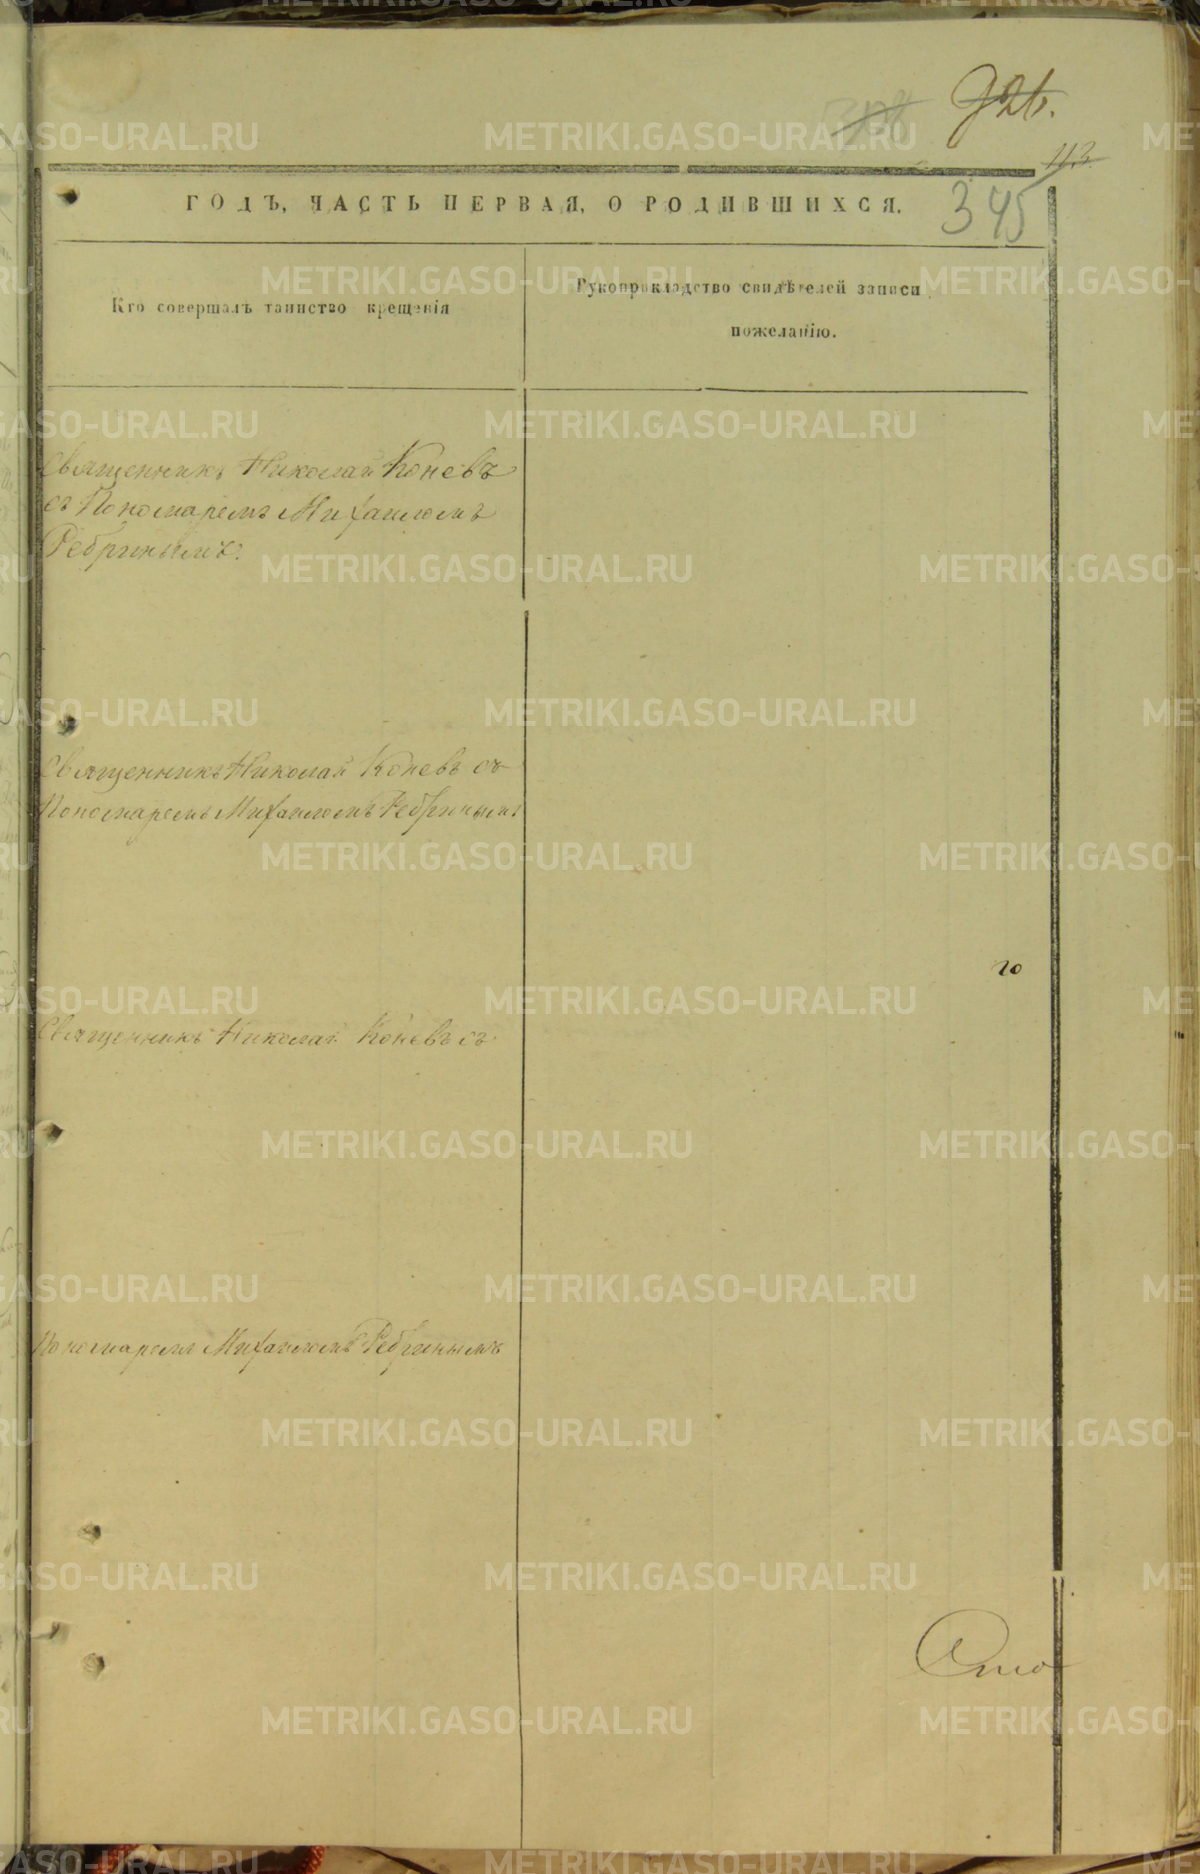 926.
113
345
ГОДЪ, ЧАСТЬ ПЕРВАЯ, О РОДИВШИХСЯ.
Кто совершалъ таинство крещенія
Рукоприкладство свидѣтелей записи
пожеланію.
Священникъ Николай Коневъ
съ Пономаремъ Михаиломъ
Ребринымъ.
Священникъ Николай Коневъ съ
Пономаремъ Михаиломъ Ребринымъ
го
Священникъ Николай Коневъ съ
Пономаремъ Михаиломъ Ребринымъ
METRIKI.GASO-URAL.RU